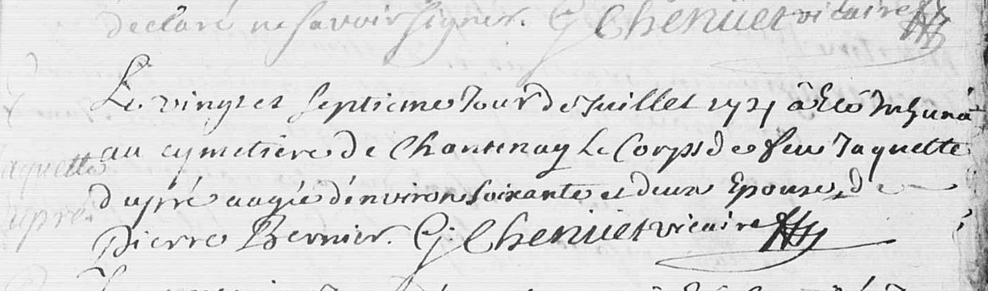 declaré ne savoir signer. G Chenuet vicaire
Le vingt et septieme Jour de Juillet 1721 à Eté Inhumé
au cymetiere de Chantenay Le Corps de feu Jaquette
dupré aagée d'environ soixante et deux Epouse de
Pierre Bernier. G: Chenuet vicaire
Jaquette
dupré